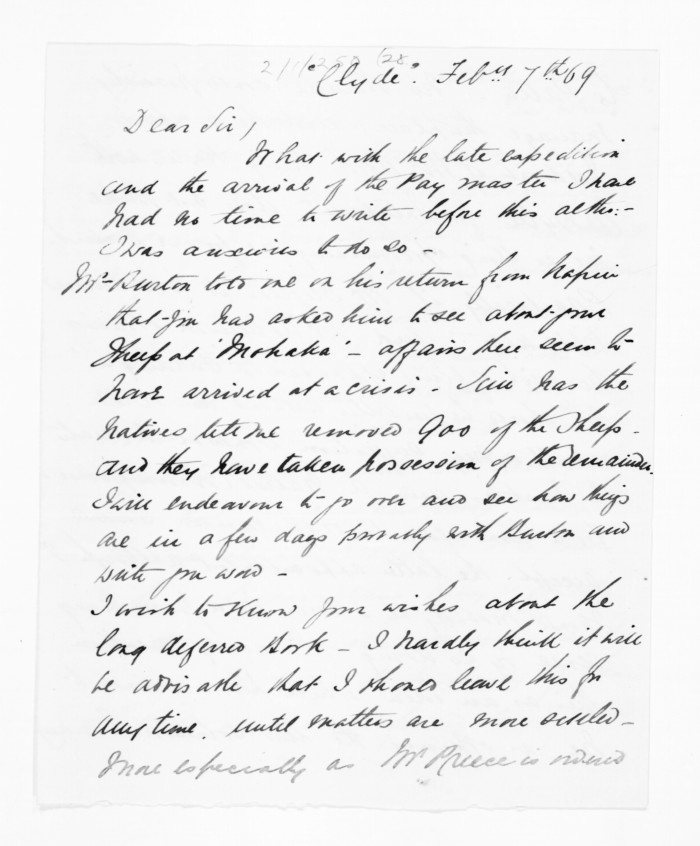 "Clyde". Feby 7th 69
Dear Sir,
What with the late expedition
and the arrival of the Pay master I have
had no time to write before this altho:-
I was anxious to do so -
Mr Burton told me on his return from Napier
that you had asked him to see about your
Sheep at 'Mohaka' - affairs there seem to
have arrived at a crisis - has the
Natives tell me removed 900 of the Sheep -
and they have taken possession of the remainder.
I will endeavour to go over and see how things
are in a few days probably with Burton and
write you word -
I wish to know your wishes about the
long deferred Book - I hardly think it will
be advisable that I should leave this for
any time, until matters are more settled -
More especially as Mr Preece is ordered